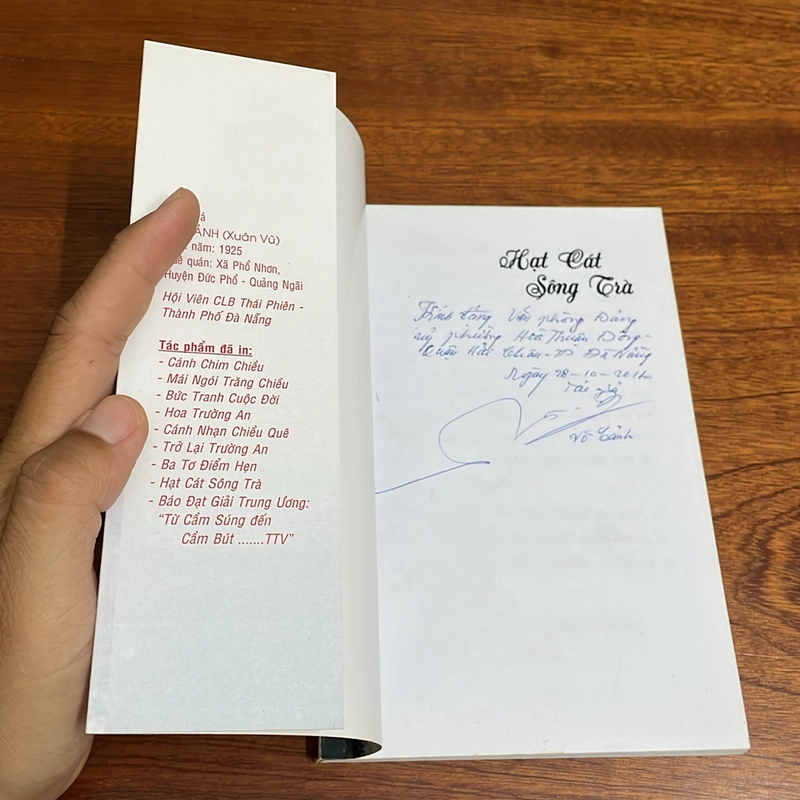 ẢNH (Xuân Vũ)
năm: 1925
quán: Xã Phổ Nhơn,
Huyện Đức Phổ - Quảng Ngãi
Hội Viên CLB Thái Phiên -
Thành Phố Đà Nẵng
Tác phẩm đã in:
- Cánh Chim Chiều
- Mái Ngói Trăng Chiều
- Bức Tranh Cuộc Đời
- Hoa Trường An
- Cánh Nhạn Chiều Quê
- Trở Lại Trường An
- Ba Tơ Điểm Hẹn
- Hạt Cát Sông Trà
- Báo Đạt Giải Trung Ương:
“Từ Cầm Súng đến
Cầm Bút .......TTV”
Hạt Cát
Sông Trà
Kính tặng Văn phòng Đảng
ủy phường Hoà Thuận Đông -
Quận Hải Châu - TP Đà Nẵng
Ngày 28-10-2012
Tác giả
Võ Cảnh